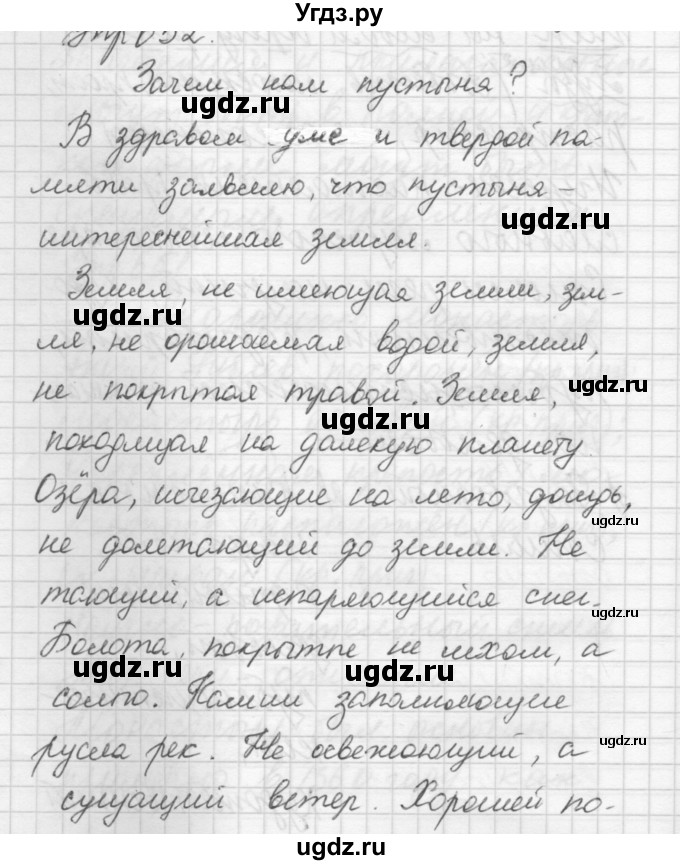 Угдз.ру
Упр 632.
Зачем нам пустыня?
ugdz.ru
В здравом уме и твердой па-
мяти заявляю, что пустыня –
ugdz.ru
интереснейшая земля.
Земля, не имеющая земли, зем-
ugdz.ru
ля, не орошаемая водой, земля,
не покрытая травой. Земля,
ugdz.ru
ugdz.ru
походящая на далекую планету.
Озёра, исчезающие на лето, дождь,
ugdz.ru
не долетающий до земли. Не
тающий, а испаряющийся снег.
ugdz.ru
Болота, покрытые не мхом, а
ugdz.ru
ugdz.ru
солью. Камни заполняющие
русла рек. Не освежающий, а
ugdz.ru
сушащий ветер. Хорошей по-
ugdz.ru